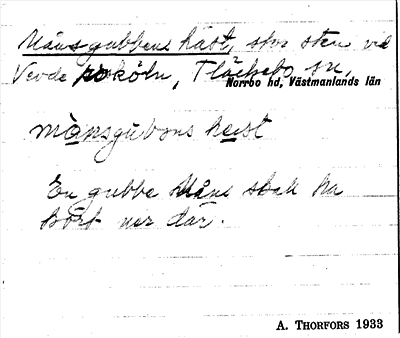 Månsgubbens häst, stor sten vid
Vevde roköln, Fläckebo sn,
Norrbo hd, Västmanlands län
månsgubons hest
En gubbe Måns skall ha
kört ner där.
A. THORFORS 1933